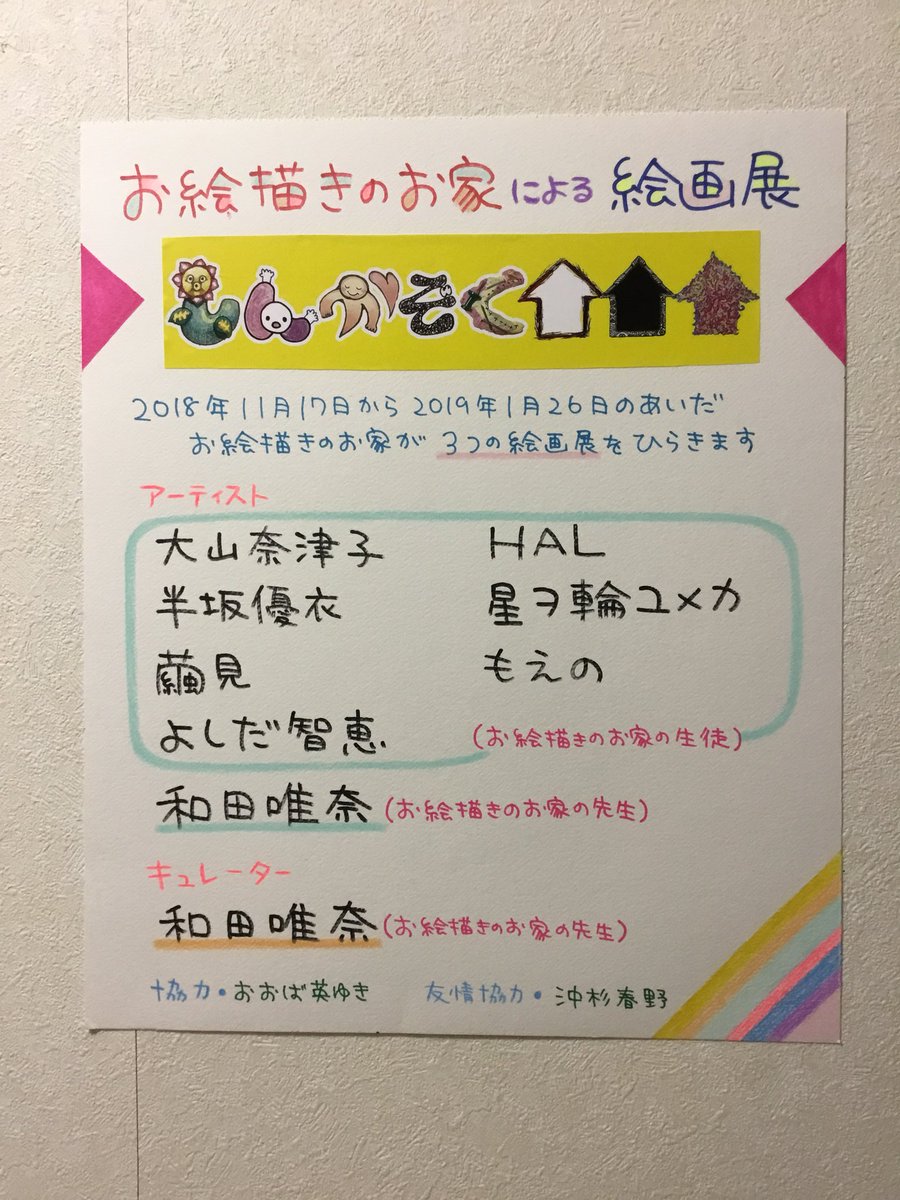 お絵描きのお家による絵画展
しんかぞく
2018年11月17日から2019年1月26日のあいだ
お絵描きのお家が3つの絵画展をひらきます
アーティスト
大山奈津子
半坂優衣
繭見
よしだ智恵
HAL
星ヲ輪ユメカ
もえの
(お絵描きのお家の生徒)
和田唯奈(お絵描きのお家の先生)
キュレーター
和田唯奈(お絵描きのお家の先生)
協力・おおば英ゆき 友情協力・沖杉春野